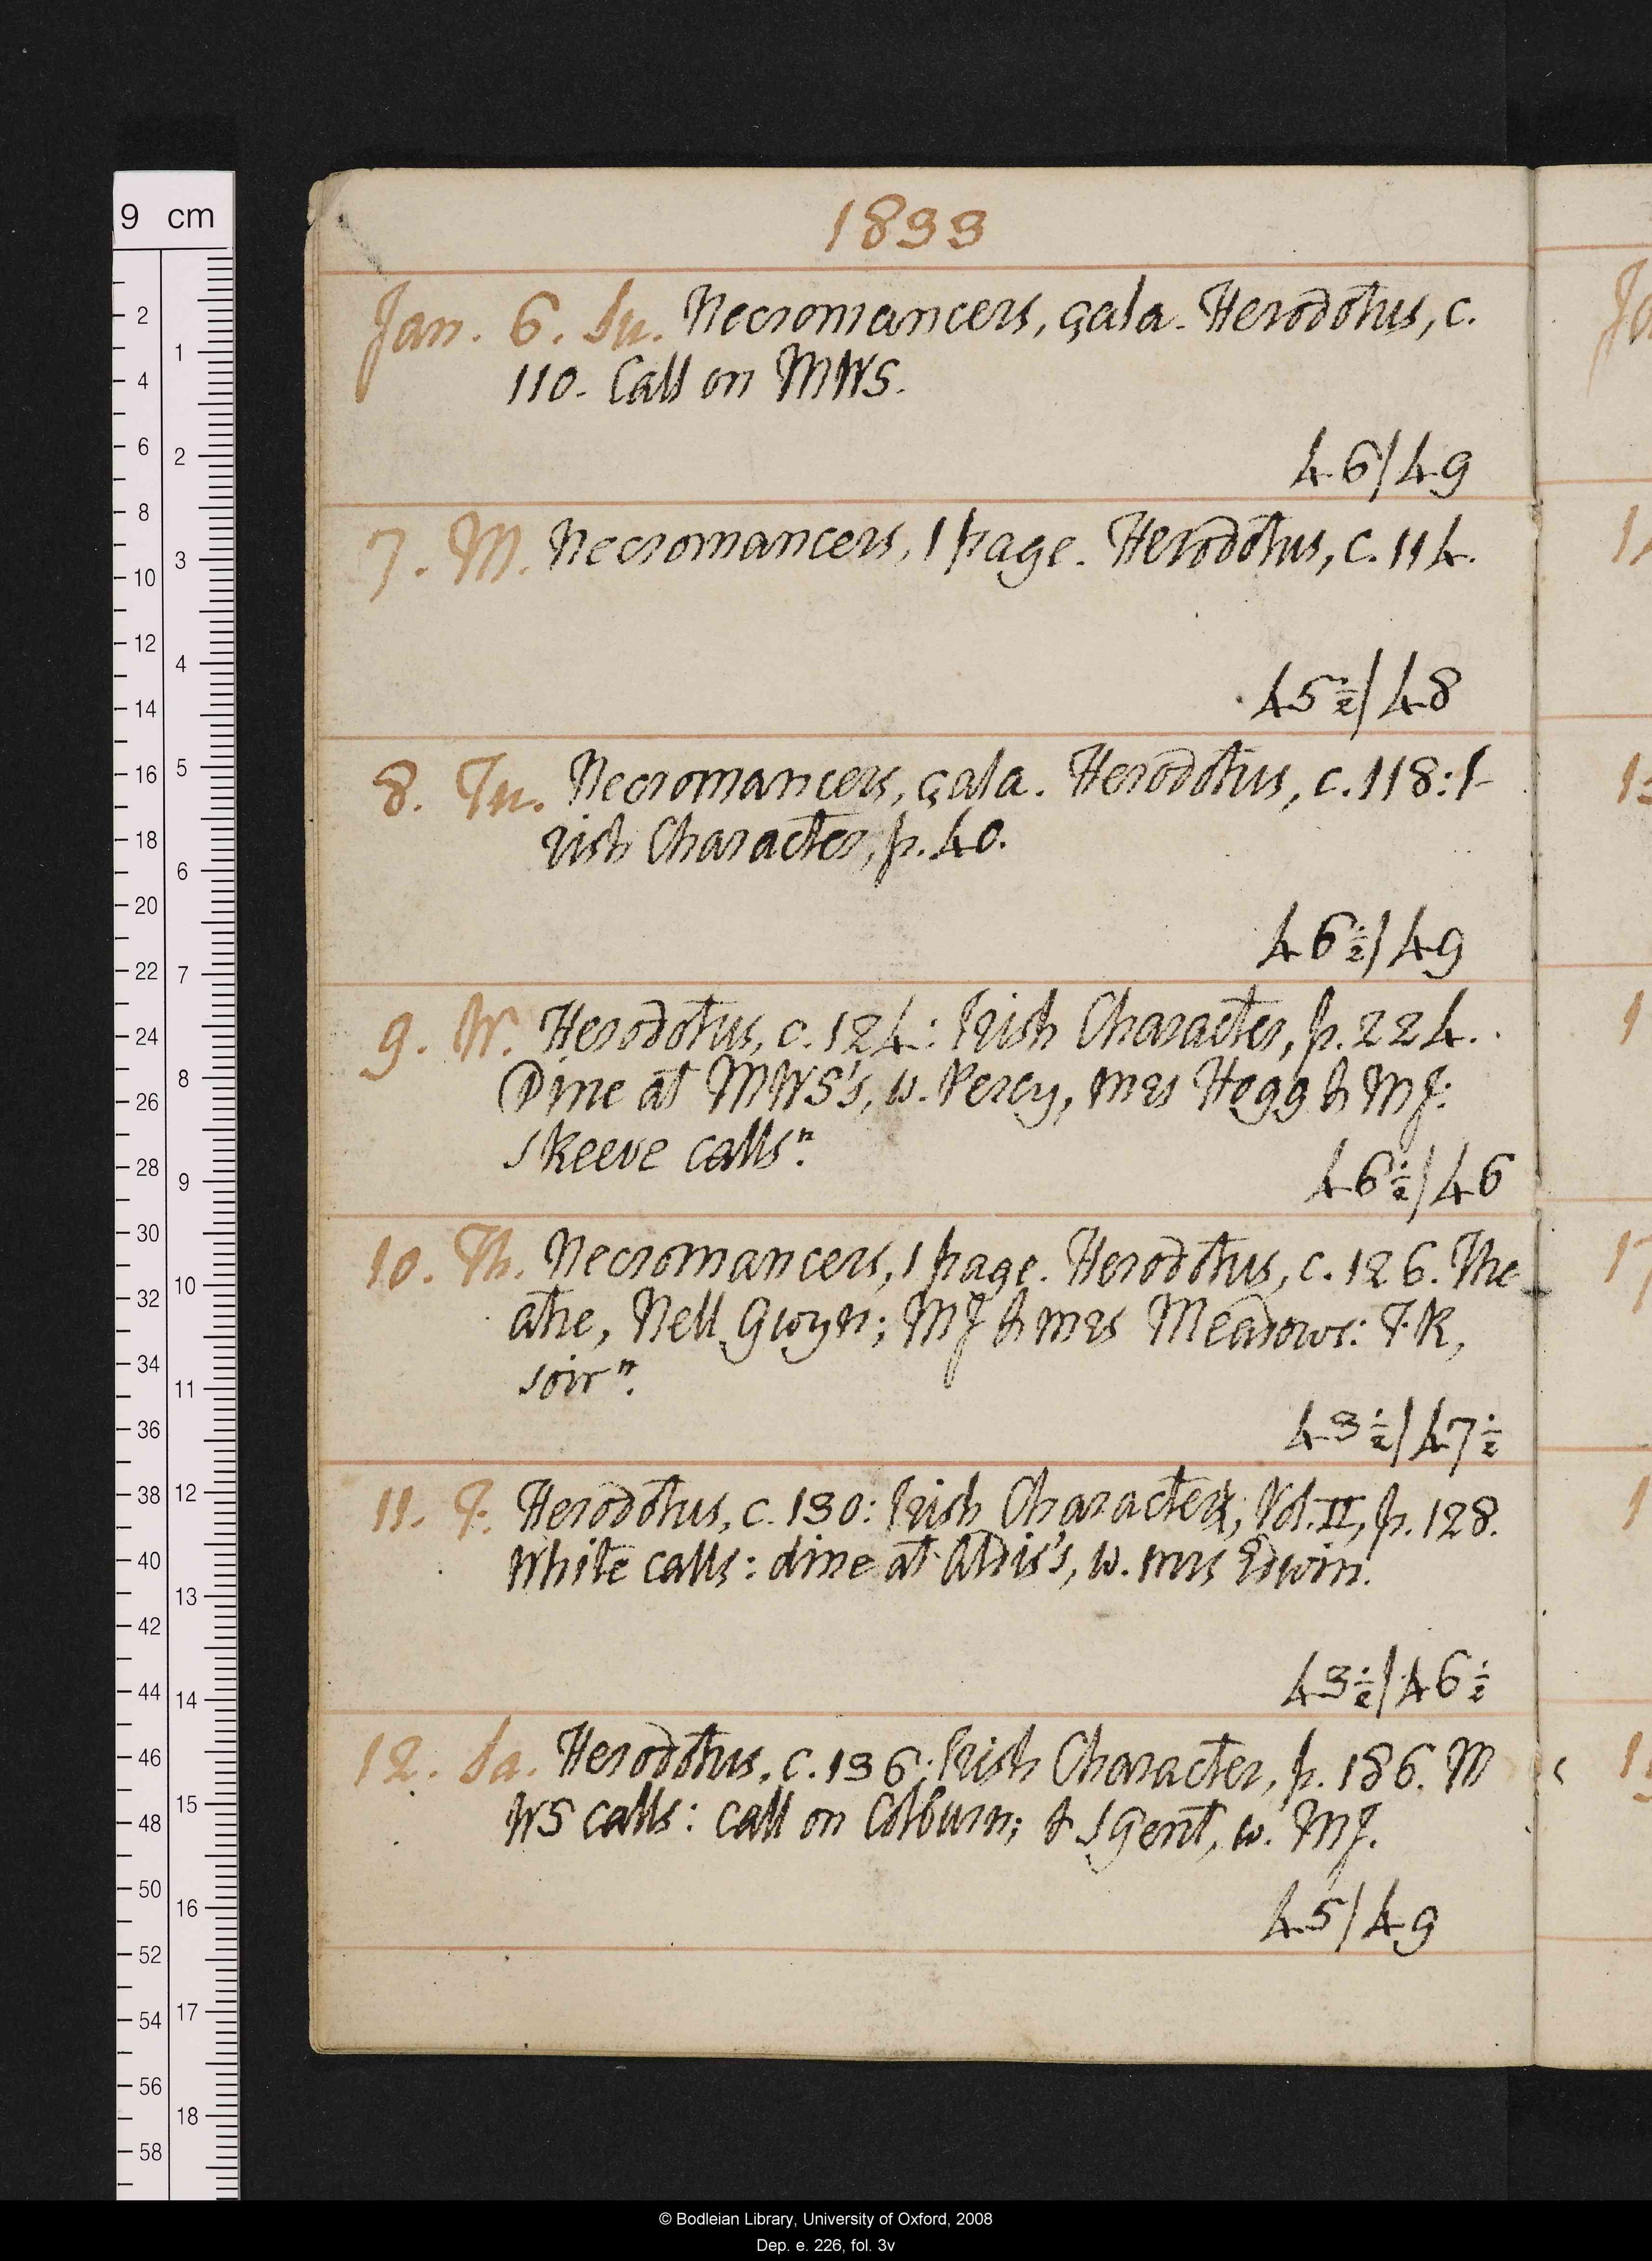 9 cm
1833
Jan. 6. Su. Necromancers, çala. Herodotus, c.
110. Call on MWS.
46/49
7. M. Necromancers, 1 page. Herodotus, c. 114.
45½/48
8. Tu. Necromancers, çala. Herodotus, c. 118: I-
rish Character, p. 40.
46½/49
9. W. Herodotus, c. 124: Irish Character, p. 224.
Dine at MWS's, w. Percy, Mrs Hogg & MJ:
Skeeve callsⁿ.
46½/46
10. Th. Necromancers, 1 page. Herodotus, c. 126. The
atre, Nell Gwyn; MJ & Mrs Meadows: F.K,
soirⁿ.
43½/47½
11. F. Herodotus, c. 130: Irish Character, Vol. II, p. 128.
White calls: dine at Aldis's, w. Mrs Edwin.
43½/46½
12. Sa. Herodotus, c. 136: Irish Character, p. 186. M
WS calls: call on Colburn; & SGent, w. MJ.
45/49
© Bodleian Library, University of Oxford, 2008
Dep. e. 226, fol. 3v